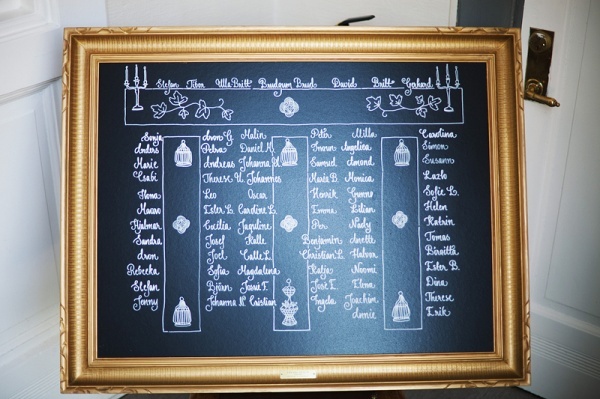 Stefan Tibor Ulla Britt Brudgum Brud David Britt Gerhard
Sonja
Anders
Marie
Csabi
Ilona
Hjalmar
Sandra
Aron
Rebecka
Stefan
Jenny
Aron G
Petra
Andreas
Therese U.
Leo
Ester L.
Cecilia
Josef
Joel
Sofia
Björn
Johanna N.
Malin
Daniel M.
Johannes
Oscar
Caroline L.
Jaqueline
Kalle
Calle L.
Magdalena
Cristian
Peter
Samuel
Maria B.
Henrik
Emma
Per
Benjamin
Christian L.
Katja
José E.
Angela
Milla
Angelica
Amond
Monica
Gunne
Lilian
Nady
Anette
Halvor
Noomi
Elena
Joachim
Annie
Carolina
Simon
Susann
Laslo
Sofie L.
Helen
Katrin
Tomas
Birgitta
Ester B.
Dina
Therese
Erik